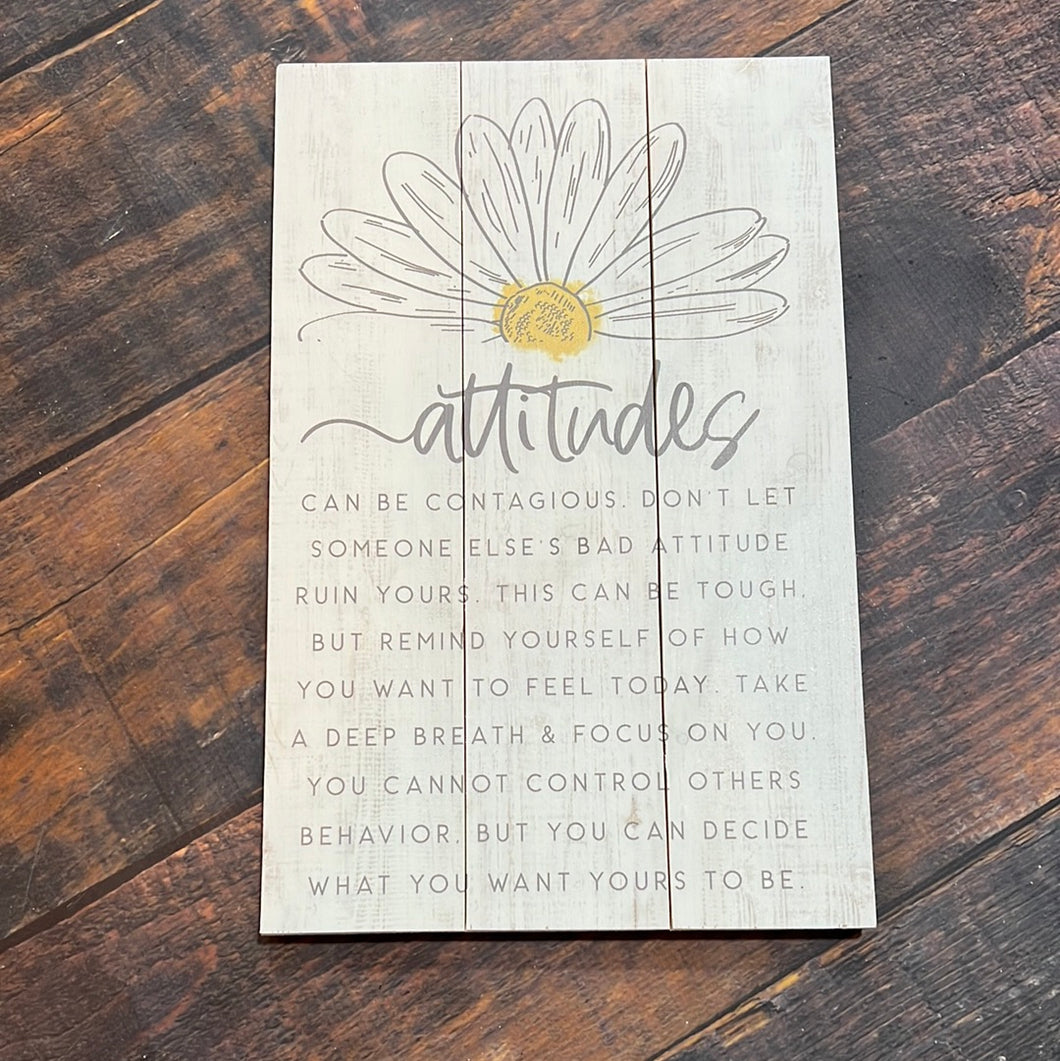 attitudes
CAN BE CONTAGIOUS. DON'T LET
SOMEONE ELSE'S BAD ATTITUDE
RUIN YOURS. THIS CAN BE TOUGH,
BUT REMIND YOURSELF OF HOW
YOU WANT TO FEEL TODAY. TAKE
A DEEP BREATH & FOCUS ON YOU.
YOU CANNOT CONTROL OTHERS
BEHAVIOR, BUT YOU CAN DECIDE
WHAT YOU WANT YOURS TO BE.